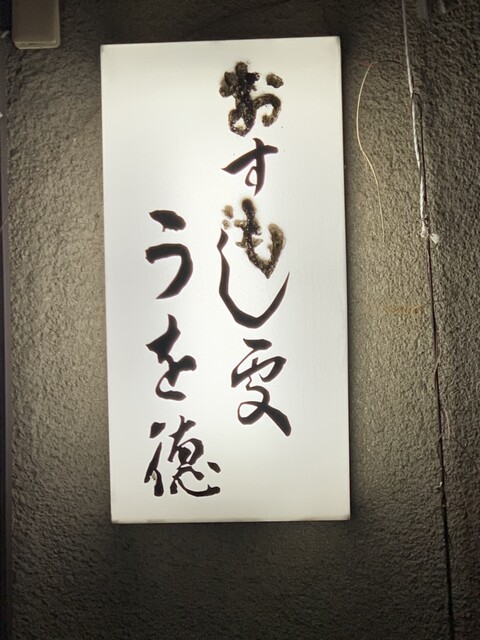 おすもし処
うを徳